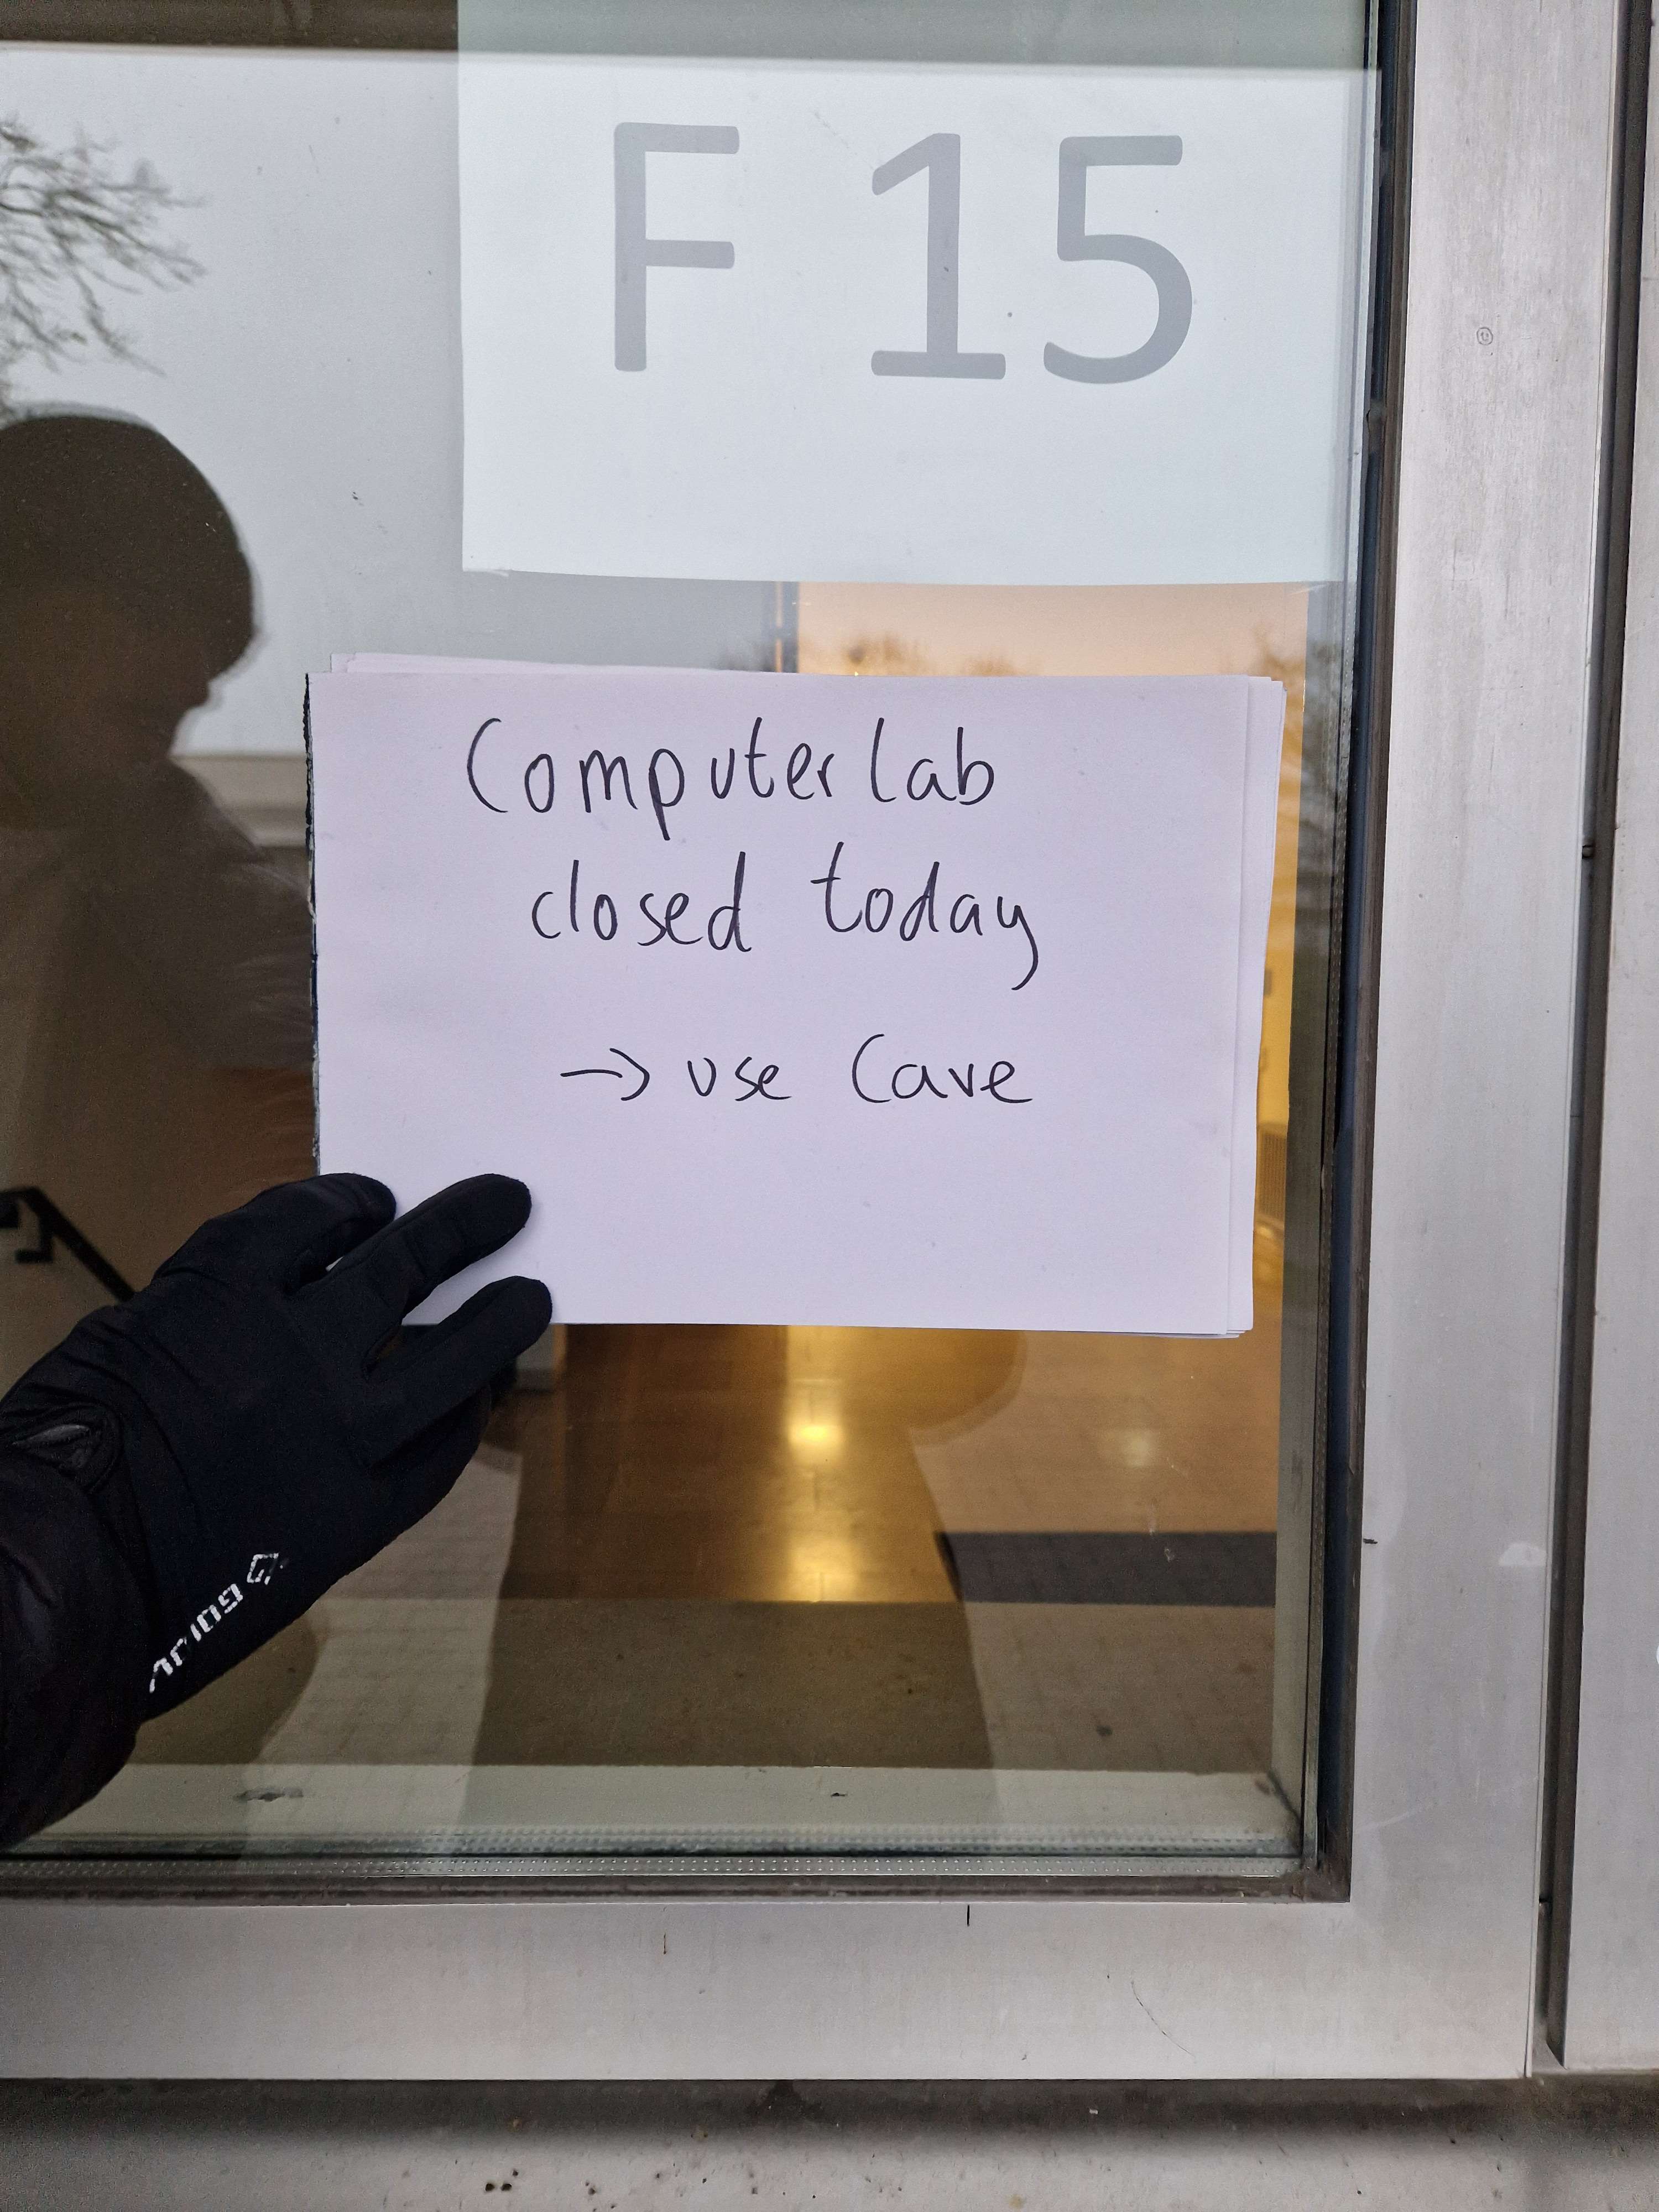 F 15
Computer Lab
closed today
→ use Cave